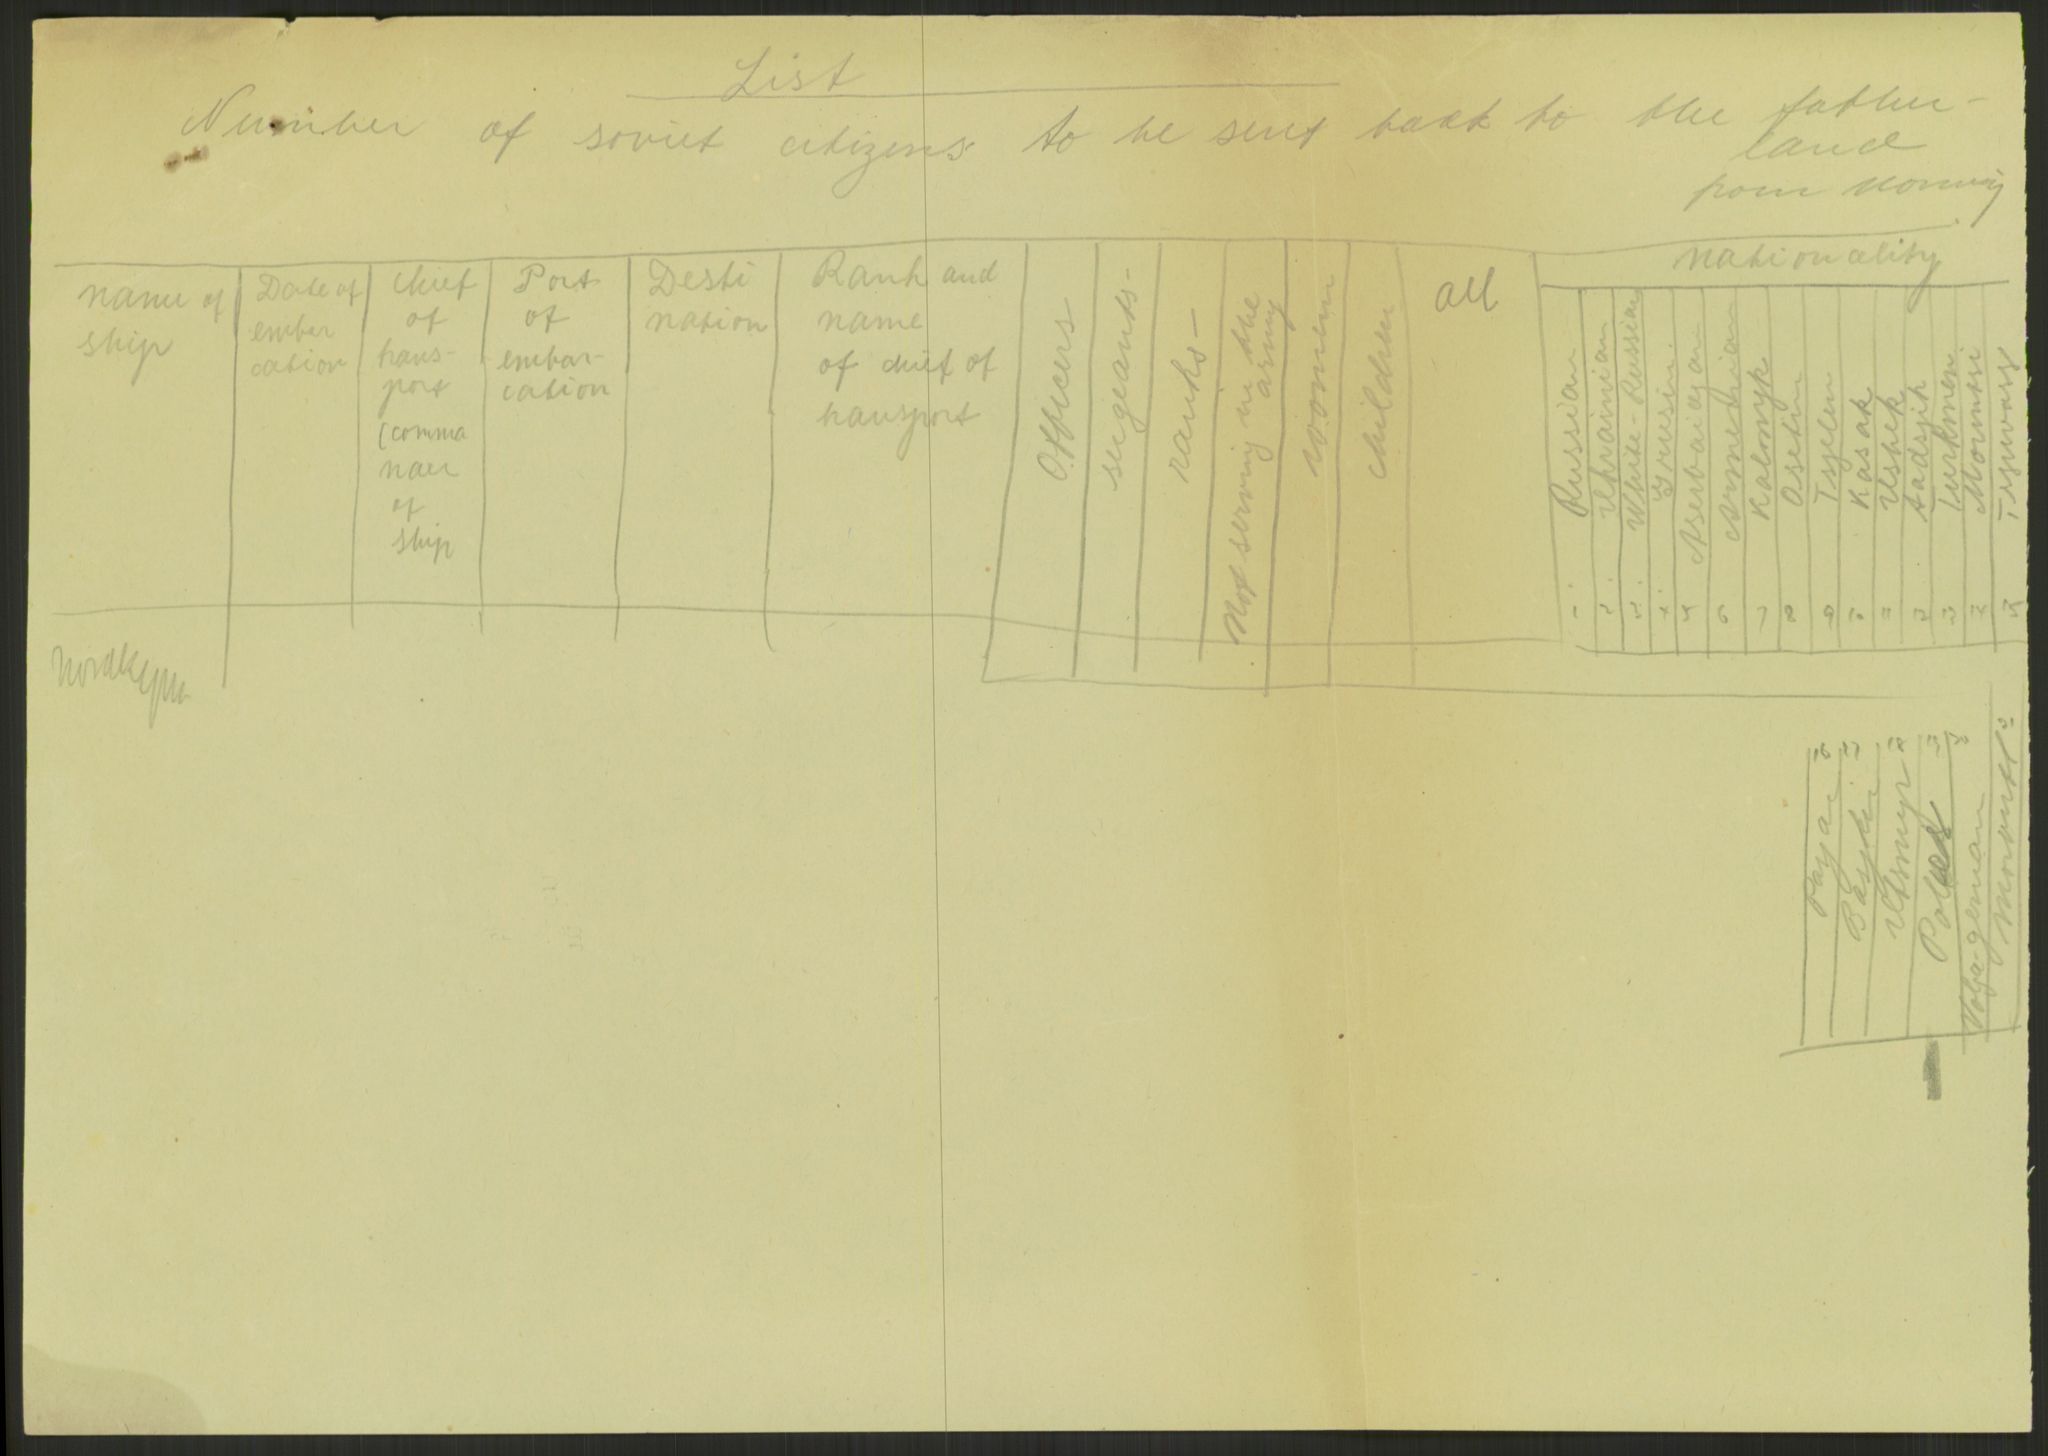 List
Number of soviet citizens to be sent back to the father-
land
from Norway
Name of
ship
Date of
embar
cation
Chief
of
trans-
port
(comma
nder
of
ship
Port
of
embar-
cation
Desti
nation
Rank and
name
of chief of
transport
Officers
sergeants-
ranks-
Not serving in the
army
women
children
all
Nationality
1. Russian
2. Ukrainian
3. White-Russian
4 Grusin
5 Aserbaidjan
6 Armenian
7 Kalmyk
8 Osetin
9
10 Kasak
11 Usbek
12 Tadsjik
13 Turkmen
14
15 Tsjuvasj
Nordkyn
16
17 Basjkir
18
19
Volga-german